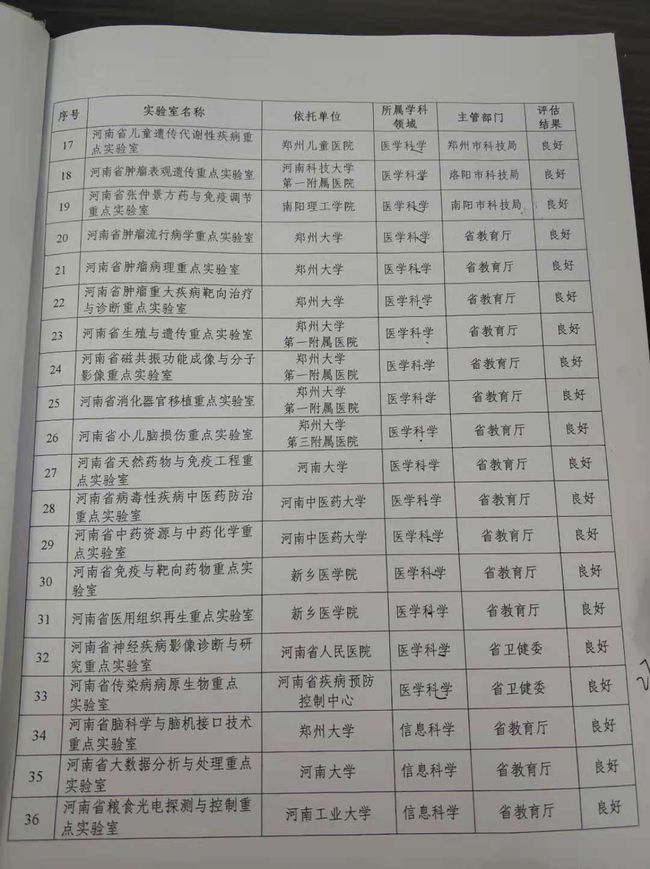 序号 实验室名称 依托单位 所属学科领域 主管部门 评估结果
17 河南省儿童遗传代谢性疾病重点实验室 郑州儿童医院 医学科学 郑州市科技局 良好
18 河南省肿瘤表观遗传重点实验室 河南科技大学第一附属医院 医学科学 洛阳市科技局 良好
19 河南省张仲景方药与免疫调节重点实验室 南阳理工学院 医学科学 南阳市科技局 良好
20 河南省肿瘤流行病学重点实验室 郑州大学 医学科学 省教育厅 良好
21 河南省肿瘤病理重点实验室 郑州大学 医学科学 省教育厅 良好
22 河南省肿瘤重大疾病靶向治疗与诊断重点实验室 郑州大学 医学科学 省教育厅 良好
23 河南省生殖与遗传重点实验室 郑州大学第一附属医院 医学科学 省教育厅 良好
24 河南省磁共振功能成像与分子影像重点实验室 郑州大学第一附属医院 医学科学 省教育厅 良好
25 河南省消化器官移植重点实验室 郑州大学第一附属医院 医学科学 省教育厅 良好
26 河南省小儿脑损伤重点实验室 郑州大学第三附属医院 医学科学 省教育厅 良好
27 河南省天然药物与免疫工程重点实验室 河南大学 医学科学 省教育厅 良好
28 河南省病毒性疾病中医药防治重点实验室 河南中医药大学 医学科学 省教育厅 良好
29 河南省中药资源与中药化学重点实验室 河南中医药大学 医学科学 省教育厅 良好
30 河南省免疫与靶向药物重点实验室 新乡医学院 医学科学 省教育厅 良好
31 河南省医用组织再生重点实验室 新乡医学院 医学科学 省教育厅 良好
32 河南省神经疾病影像诊断与研究重点实验室 河南省人民医院 医学科学 省卫健委 良好
33 河南省传染病病原生物重点实验室 河南省疾病预防控制中心 医学科学 省卫健委 良好
34 河南省脑科学与脑机接口技术重点实验室 郑州大学 信息科学 省教育厅 良好
35 河南省大数据分析与处理重点实验室 河南大学 信息科学 省教育厅 良好
36 河南省粮食光电探测与控制重点实验室 河南工业大学 信息科学 省教育厅 良好